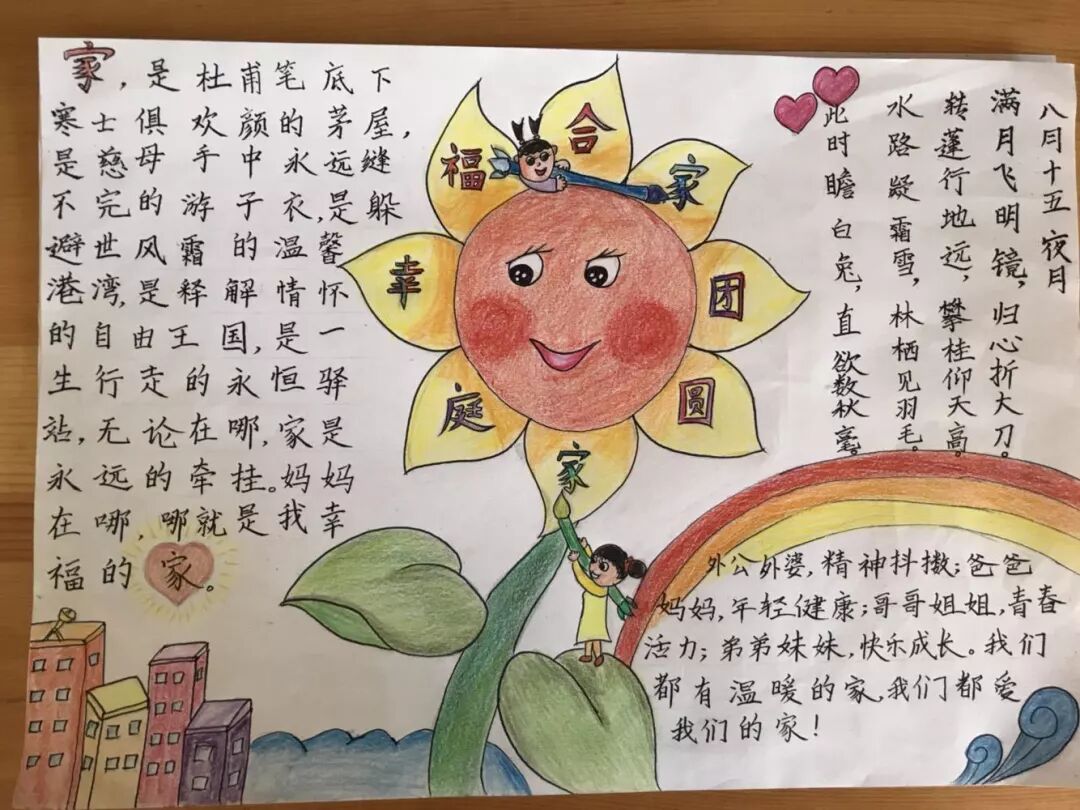 家，是杜甫笔底下
寒士俱欢颜的茅屋，
是慈母手中永远缝
不完的游子衣，是躲
避世风霜的温馨
港湾，是释解情怀
的自由王国，是一
生行走的永恒驿
站，无论在哪，家是
永远的牵挂。妈妈
在哪，哪就是我幸
福的家。
幸福家庭
合家团圆
八月十五夜月
满月飞明镜，归心折大刀。
转蓬行地远，攀桂仰天高。
水路疑霜雪，林栖见羽毛。
此时瞻白兔，直欲数秋毫。
外公外婆，精神抖擞；爸爸
妈妈，年轻健康；哥哥姐姐，青春
活力；弟弟妹妹，快乐成长。我们
都有温暖的家，我们都爱
我们的家！